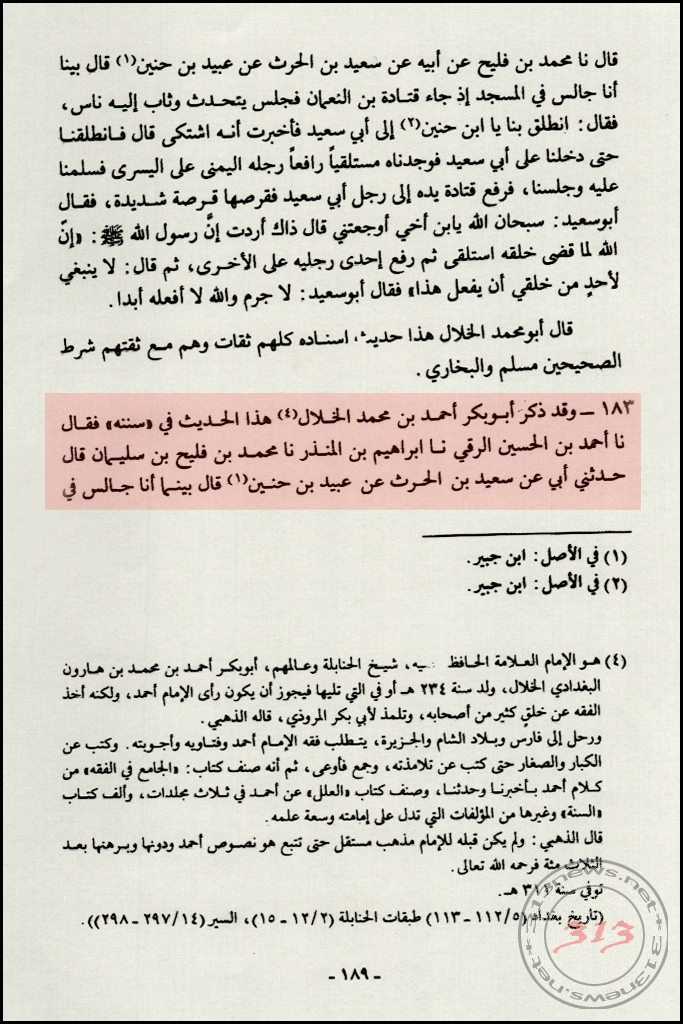 قال نا محمد بن فليح عن أبيه عن سعيد بن الحرث عن عبيد بن حنين(١) قال بينا
أنا جالس في المسجد إذ جاء قتادة بن النعمان فجلس يتحدث وثاب إليه ناس،
فقال: انطلق بنا يا ابن حنين(٢) إلى أبي سعيد فأخبرت أنه اشتكى قال فانطلقنا
حتى دخلنا على أبي سعيد فوجدناه مستلقياً رافعاً رجله اليمنى على اليسرى فسلمنا
عليه وجلسنا، فرفع قتادة يده إلى رجل أبي سعيد فقرصها قرصة شديدة، فقال
أبوسعيد: سبحان الله يابن أخي أوجعتني قال ذاك أردت إنَّ رسول الله ﷺ: «إنّ
الله لما قضى خلقه استلقى ثم رفع إحدى رجليه على الأخرى، ثم قال: لا ينبغي
لأحدٍ من خلقي أن يفعل هذا» فقال أبوسعيد: لا جرم والله لا أفعله أبدا.
قال أبومحمد الخلال هذا حديث، اسناده كلهم ثقات وهم مع ثقتهم شرط
الصحيحين مسلم والبخاري.
١٨٣ ــ وقد ذكر أبوبكر أحمد بن محمد الخلال(٤) هذا الحديث في «سننه» فقال
نا أحمد بن الحسين الرقي نا ابراهيم بن المنذر نا محمد بن فليح بن سليمان قال
حدثني أبي عن سعيد بن الحرث عن عبيد بن حنين(١) قال بينما أنا جالس في
(١) في الأصل: ابن جبير.
(٢) في الأصل: ابن جبير.
(٤) هو الإمام العلامة الحافظ شيخ الحنابلة وعالمهم، أبوبكر أحمد بن محمد بن هارون
البغدادي الخلال، ولد سنة ٢٣٤ هـ أو في التي تليها فيجوز أن يكون رأى الإمام أحمد، ولكنه أخذ
الفقه عن خلقٍ كثير من أصحابه، وتلمذ لأبي بكر المروذي، قاله الذهبي.
ورحل إلى فارس وبلاد الشام والجزيرة، يتطلب فقه الإمام أحمد وفتاويه وأجوبته. وكتب عن
الكبار والصغار حتى كتب عن تلامذته، وجمع فأوعى، ثم أنه صنف كتاب: «الجامع في الفقه» من
كلام أحمد بأخبرنا وحدثنا، وصنف كتاب «العلل» عن أحمد في ثلاث مجلدات، وألف كتاب
«السنة» وغيرها من المؤلفات التي تدل على إمامته وسعة علمه.
قال الذهبي: ولم يكن قبله للإمام مذهب مستقل حتى تتبع هو نصوص أحمد ودونها وبرهنها بعد
الثلاث مئة فرحمه الله تعالى.
توفي سنة ٣١١ هـ.
(تاريخ بغداد (١١٢/٥ ــ ١١٣) طبقات الحنابلة (١٢/٢ ــ ١٥)، السير (٢٩٧/١٤ ــ ٢٩٨)).
313news.net
313
313news.net
- ١٨٩ -